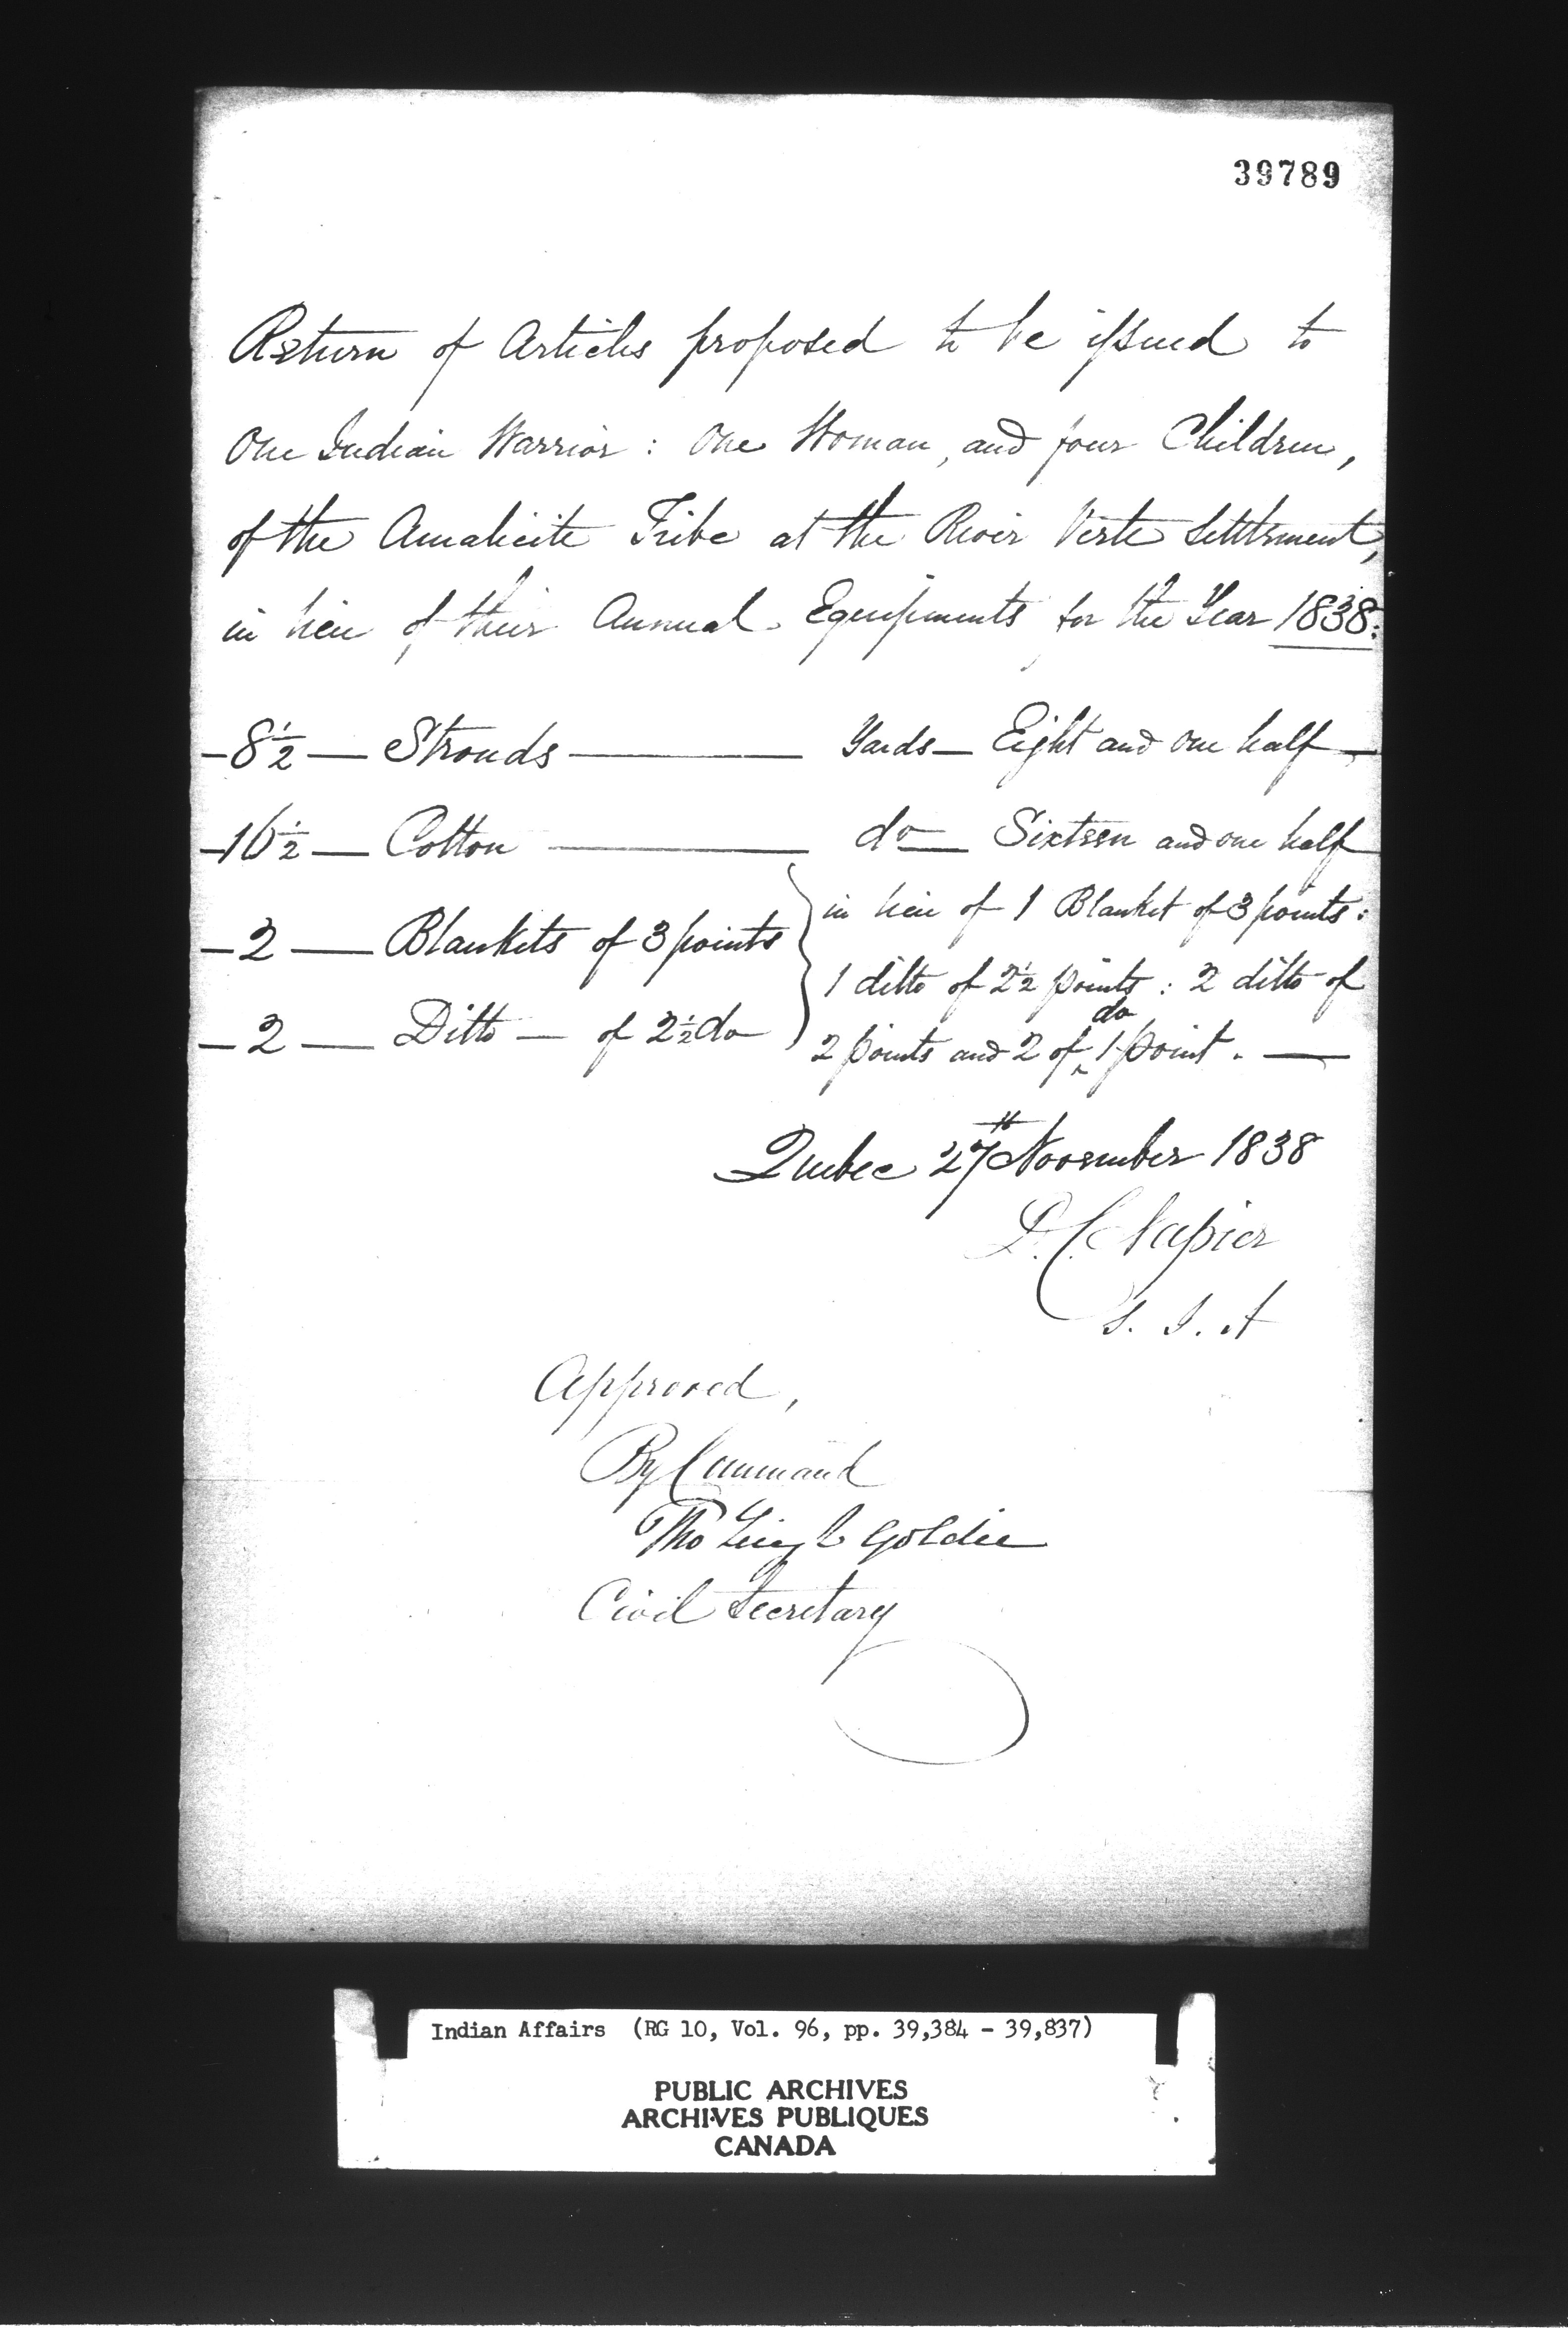 39789
Return of Articles proposed to be issued to
One Indian Warrior : One Woman, and four Children,
of the Amalicite Tribe at the River Verte Settlement,
in lieu of their Annual Equipments for the Year 1838:
- 8 1/2 — Strouds ——— Yards — Eight and one half —
- 16 1/2 — Cotton ——— do — Sixteen and one half
- 2 — Blankets of 3 points
- 2 — Ditto — of 2 1/2 do
in lieu of 1 Blanket of 3 points :
1 ditto of 2 1/2 points : 2 ditto of
2 points and 2 of do 1 point . —
Quebec 27th November 1838
D. C. Napier
S. I. A
Approved,
By Command
Tho Leigh Goldie
Civil Secretary
Indian Affairs (RG 10, Vol. 96, pp. 39,384 - 39,837)
PUBLIC ARCHIVES
ARCHIVES PUBLIQUES
CANADA